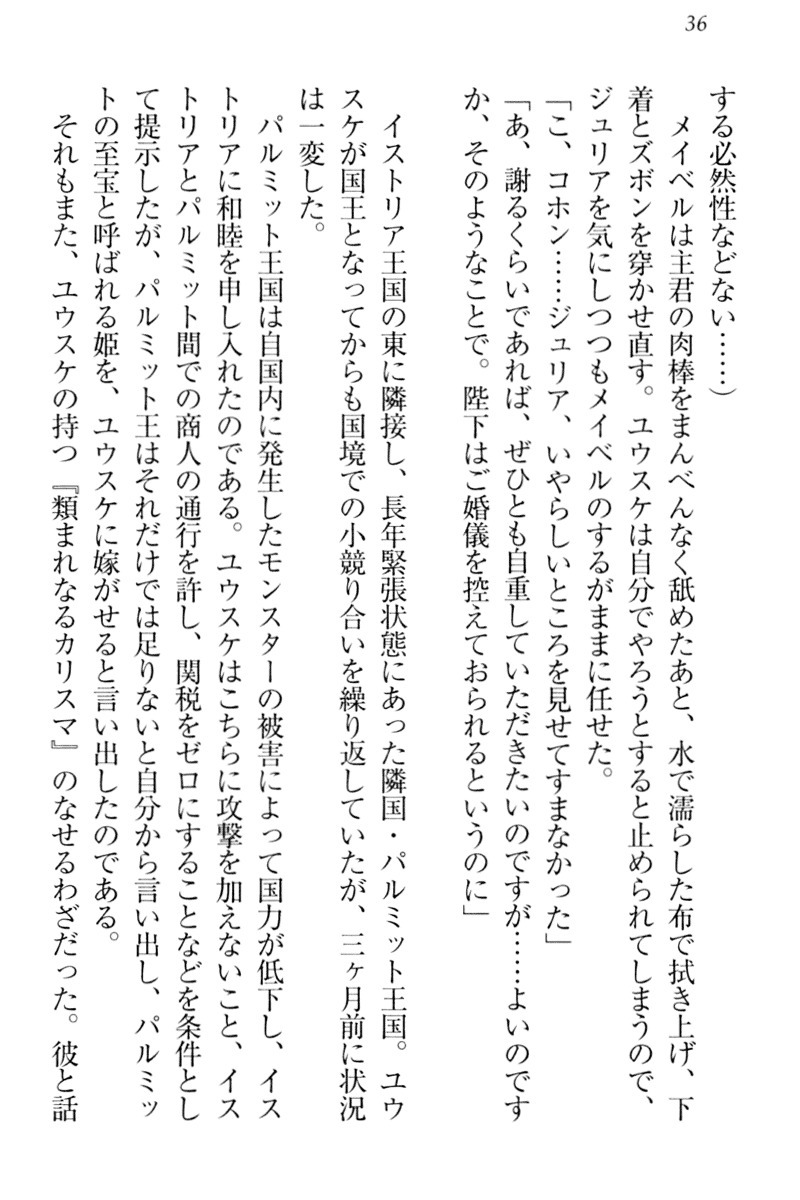 36
する必然性などない……）
　メイベルは主君の肉棒をまんべんなく舐めたあと、水で濡らした布で拭き上げ、下
着とズボンを穿かせ直す。ユウスケは自分でやろうとすると止められてしまうので、
ジュリアを気にしつつもメイベルのするがままに任せた。
「こ、コホン……ジュリア、いやらしいところを見せてすまなかった」
「あ、謝るくらいであれば、ぜひとも自重していただきたいのですが……よいのです
か、そのようなことで。陛下はご婚儀を控えておられるというのに」
　イストリア王国の東に隣接し、長年緊張状態にあった隣国・パルミット王国。ユウ
スケが国王となってからも国境での小競り合いを繰り返していたが、三ヶ月前に状況
は一変した。
　パルミット王国は自国内に発生したモンスターの被害によって国力が低下し、イス
トリアに和睦を申し入れたのである。ユウスケはこちらに攻撃を加えないこと、イス
トリアとパルミット間での商人の通行を許し、関税をゼロにすることなどを条件とし
て提示したが、パルミット王はそれだけでは足りないと自分から言い出し、パルミッ
トの至宝と呼ばれる姫を、ユウスケに嫁がせると言い出したのである。
　それもまた、ユウスケの持つ『類まれなるカリスマ』のなせるわざだった。彼と話